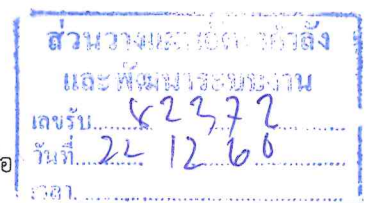 ส่วนวางแผนอัตรากำลัง
และพัฒนาระบบงาน
เลขรับ 82372
อ วันที่ 22 12 60
เวลา